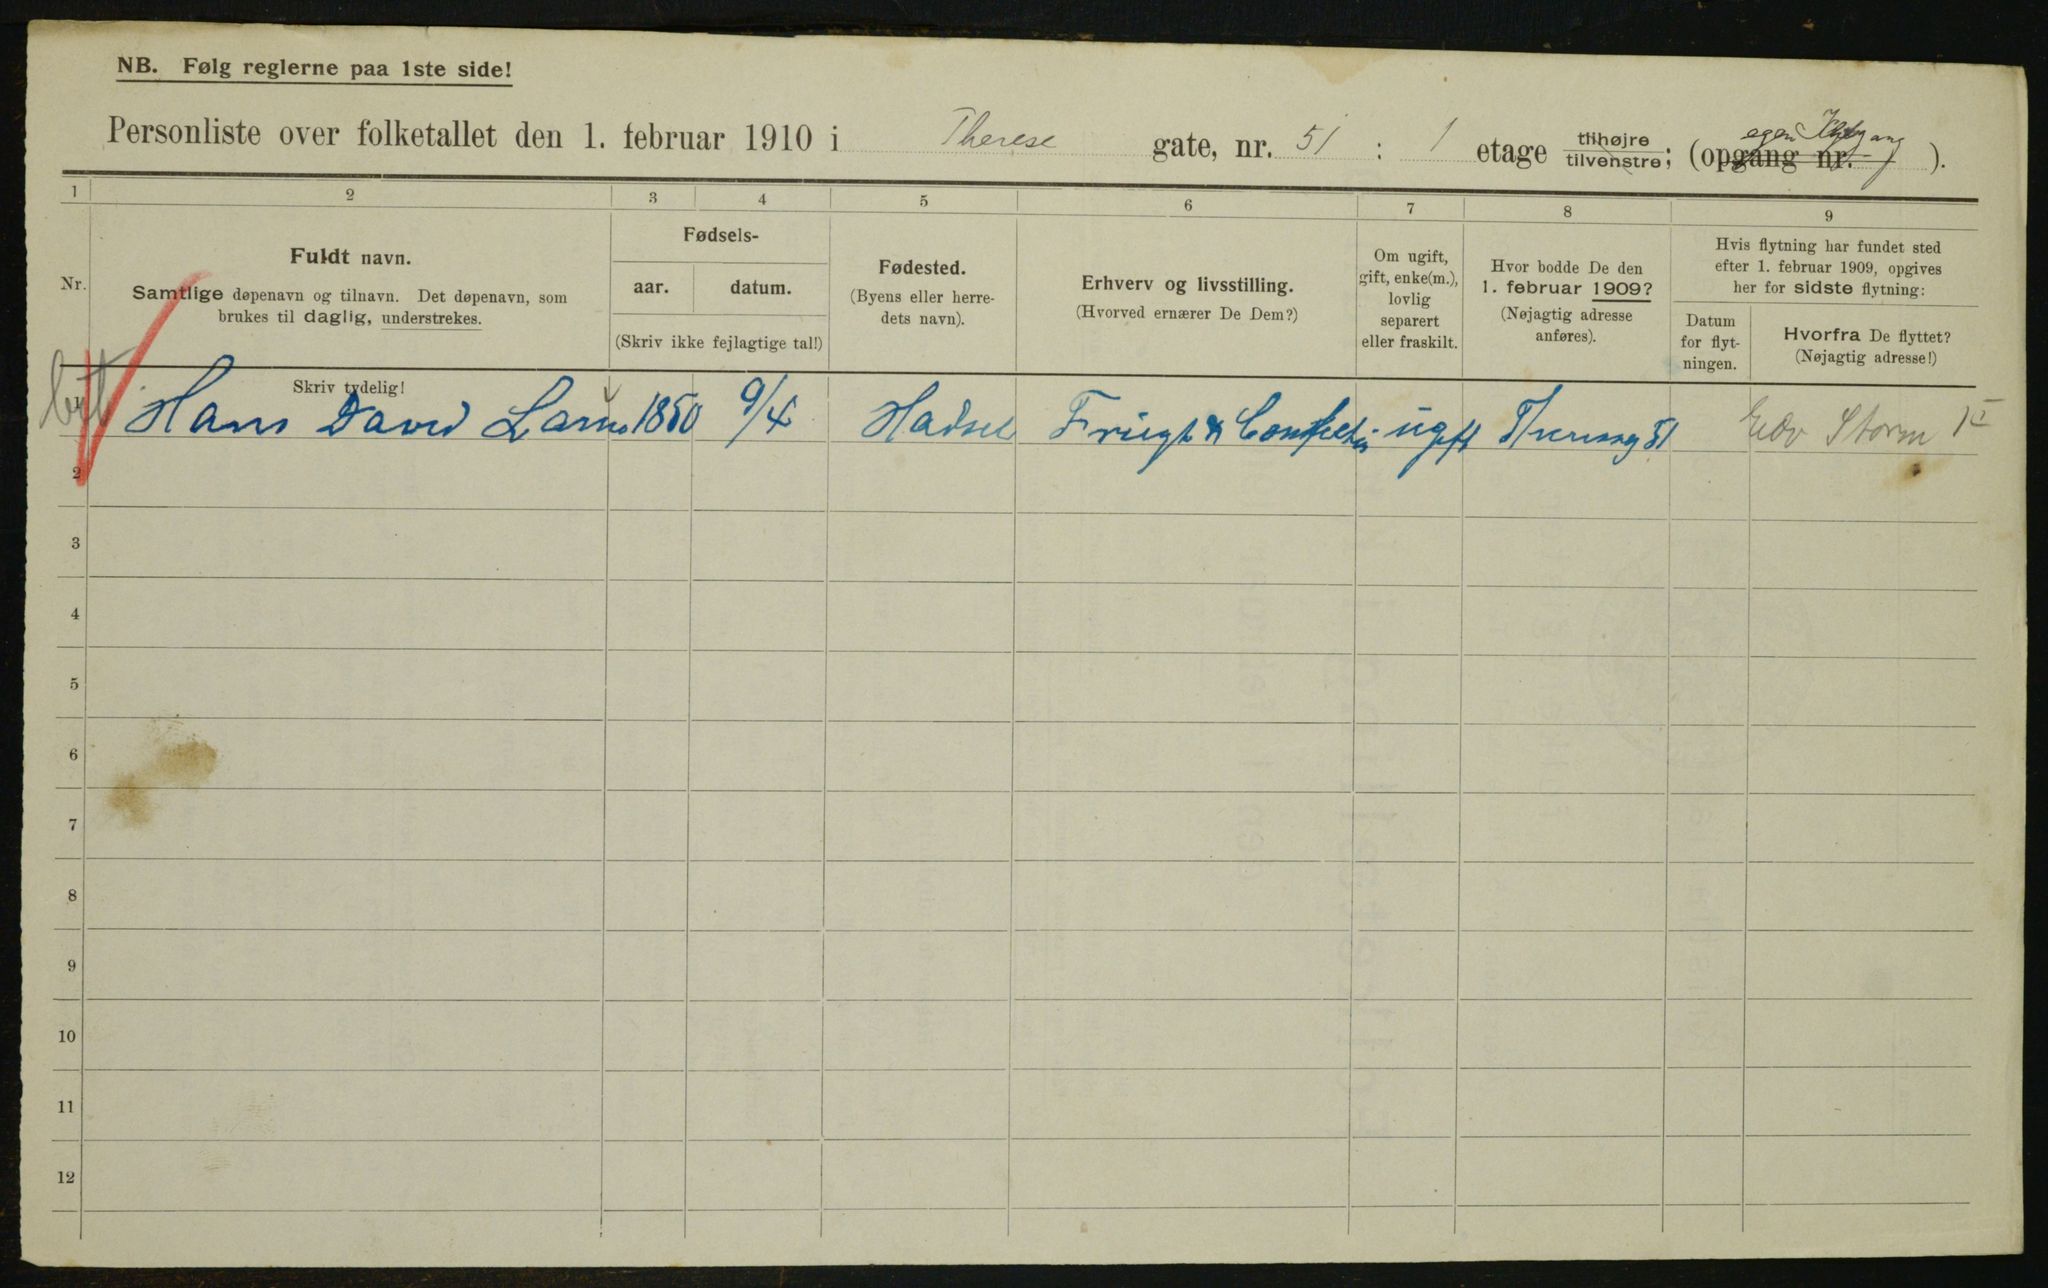 NB. Følg reglerne paa 1ste side!
Personliste over folketallet den 1. februar 1910 i Therese gate, nr. 51 : 1 etage tilhøjre tilvenstre; (opgang nr. egen ).
1 2 3 4 5 6 7 8 9
Nr.
Fuldt navn.
Samtlige døpenavn og tilnavn. Det døpenavn, som
brukes til daglig, understrekes.
Skriv tydelig!
Fødsels-
aar. datum.
(Skriv ikke fejlagtige tal!)
Fødested.
(Byens eller herre-
dets navn).
Erhverv og livsstilling.
(Hvorved ernærer De Dem?)
Om ugift,
gift, enke(m.),
lovlig
separert
eller fraskilt.
Hvor bodde De den
1. februar 1909?
(Nøjagtig adresse
anføres).
Hvis flytning har fundet sted
efter 1. februar 1909, opgives
her for sidste flytning:
Datum
for flyt-
ningen.
Hvorfra De flyttet?
(Nøjagtig adresse!)
1 Hans David 1850 9/4 Hadsel Frugt & ugift 51 Edv Storm
2
3
4
5
6
7
8
9
10
11
12